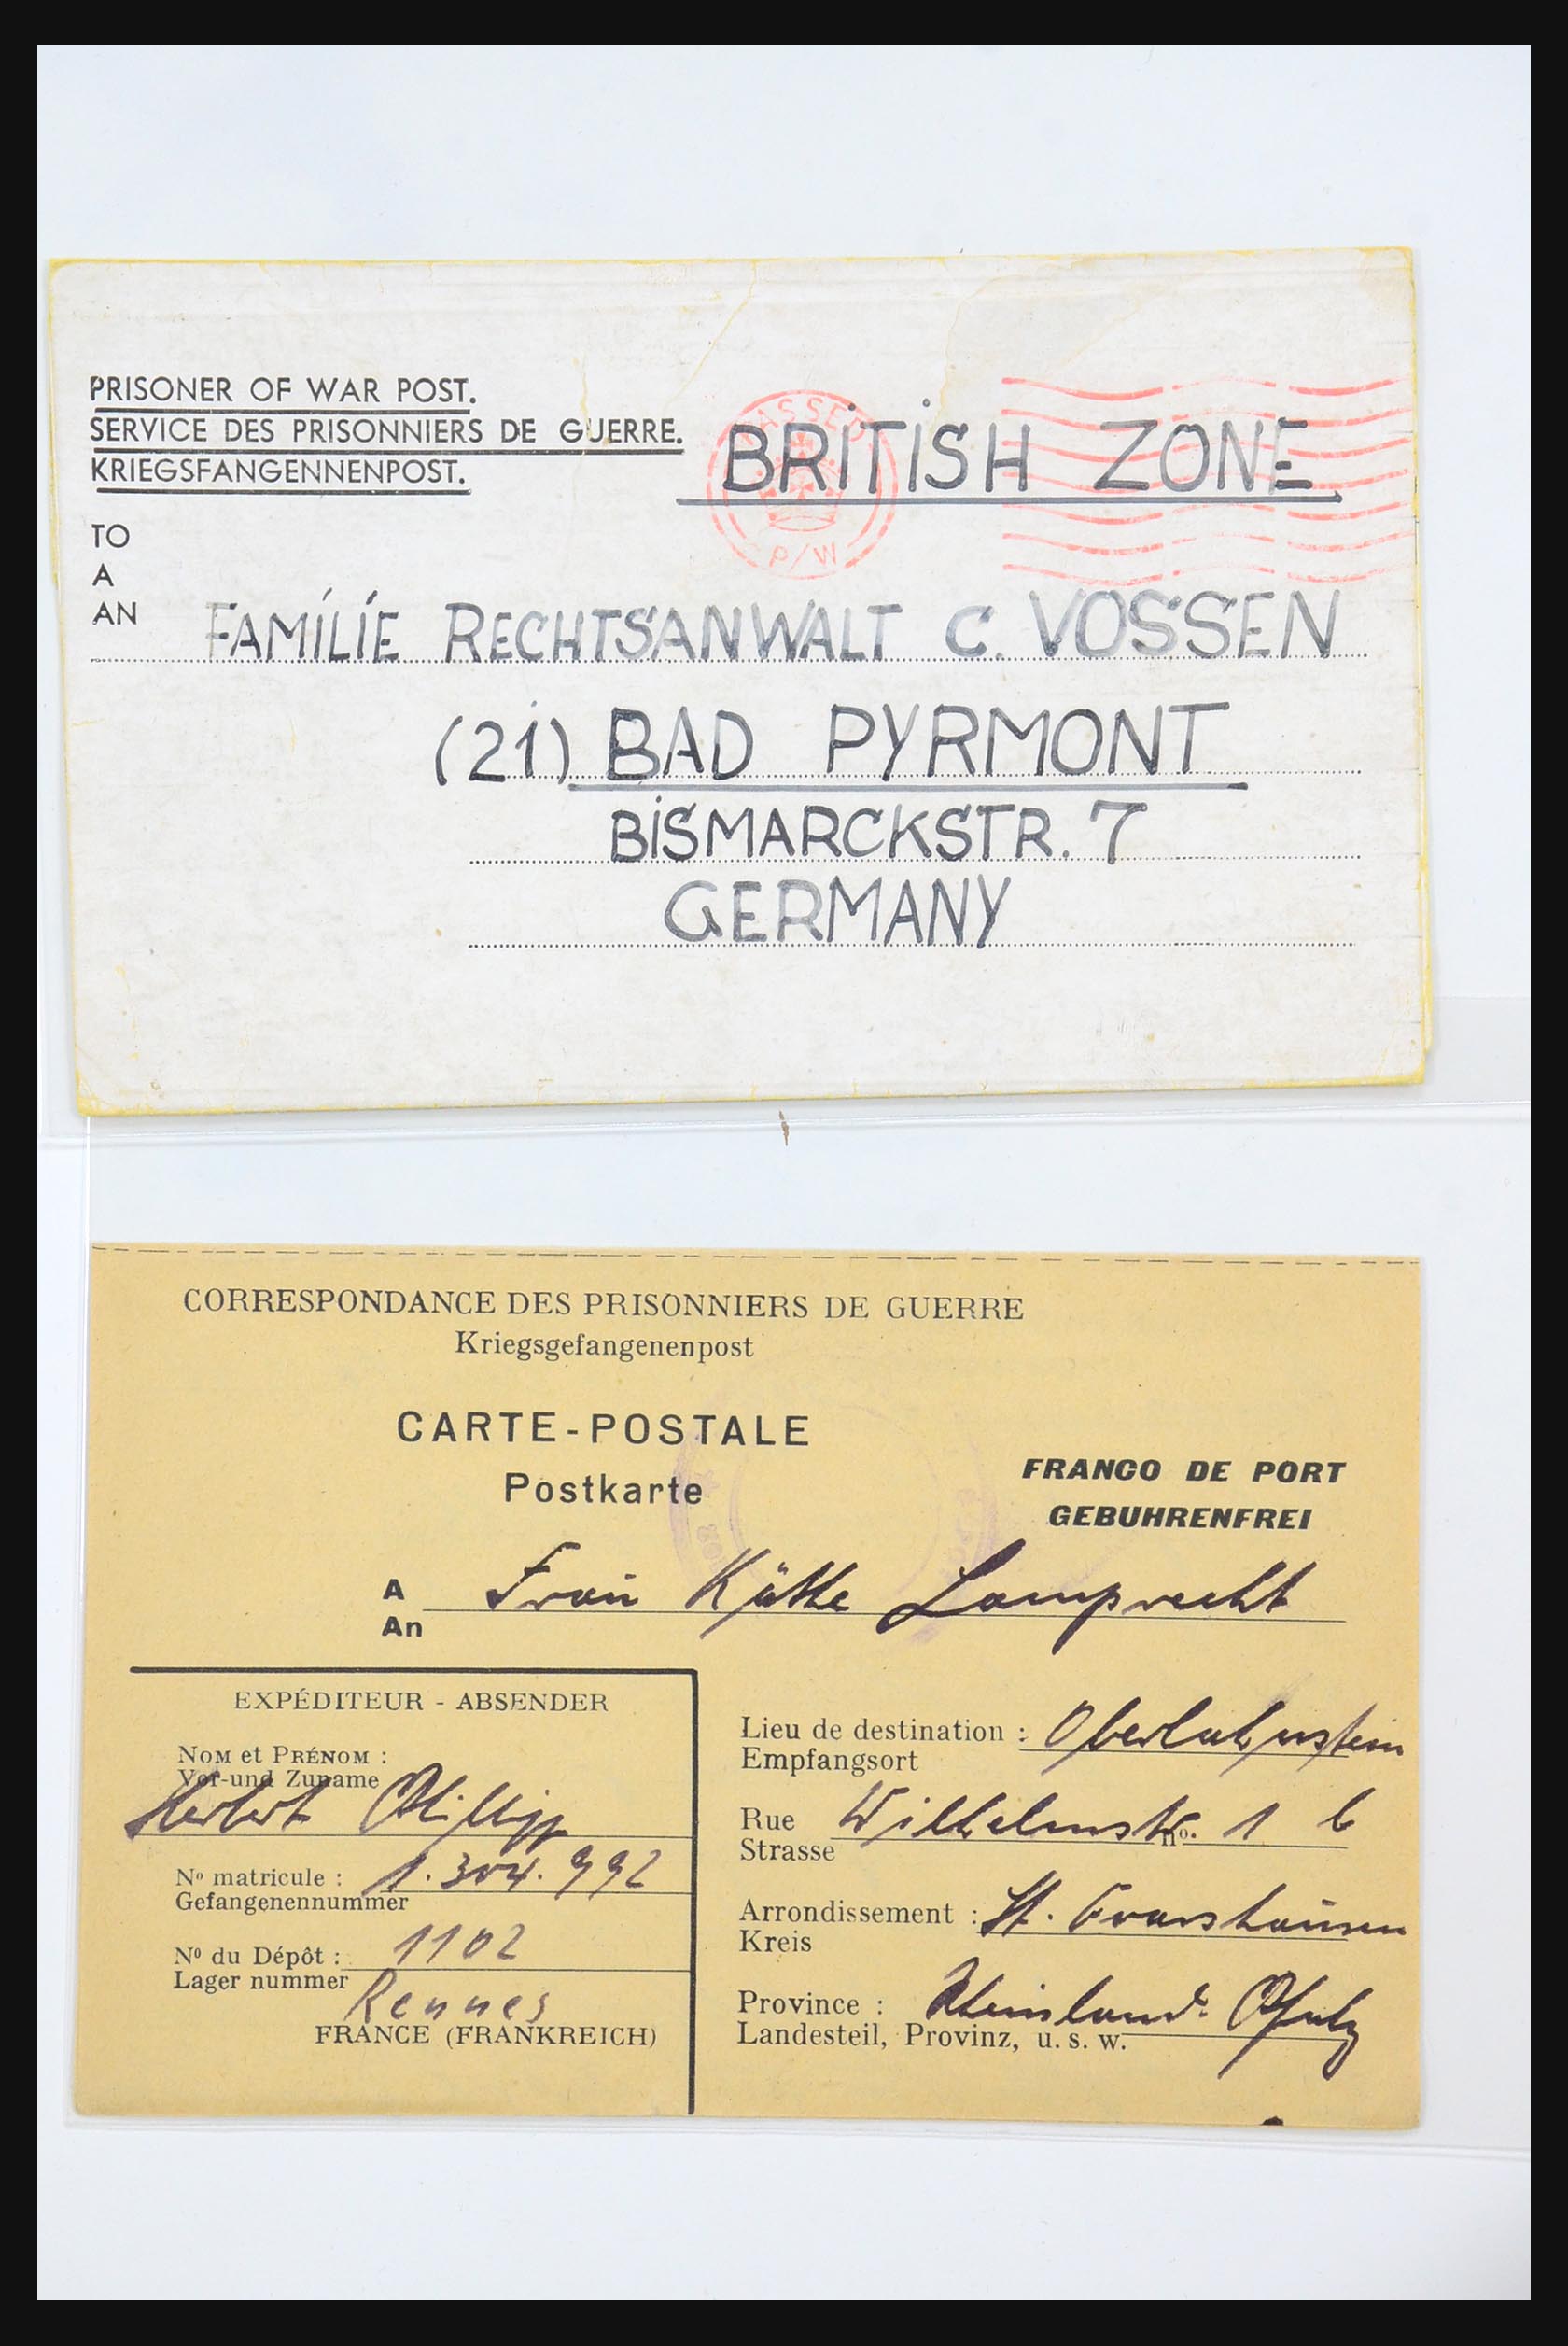 PRISONER OF WAR POST.
SERVICE DES PRISONNIERS DE GUERRE.
KRIEGSFANGENNENPOST.
PASSED
P/W
BRITISH ZONE
TO
A
AN
FAMILIE RECHTSANWALT C. VOSSEN
(21) BAD PYRMONT
BISMARCKSTR. 7
GERMANY
CORRESPONDANCE DES PRISONNIERS DE GUERRE
Kriegsgefangenenpost
CARTE-POSTALE
Postkarte
FRANCO DE PORT
GEBUHRENFREI
A
An
Frau Käthe Lamprecht
EXPÉDITEUR - ABSENDER
NOM et PRÉNOM :
Vor-und Zuname
Herbert Phillipp
No matricule : 1.304.992
Gefangenennummer
No du Dépôt : 1102
Lager nummer
Rennes
FRANCE (FRANKREICH)
Lieu de destination : Oberlahnstein
Empfangsort
Rue Wilhelmstr. no. 1 b
Strasse
Arrondissement : St. Goarshausen
Kreis
Province : Rheinland-Pfalz
Landesteil, Provinz, u. s. w.